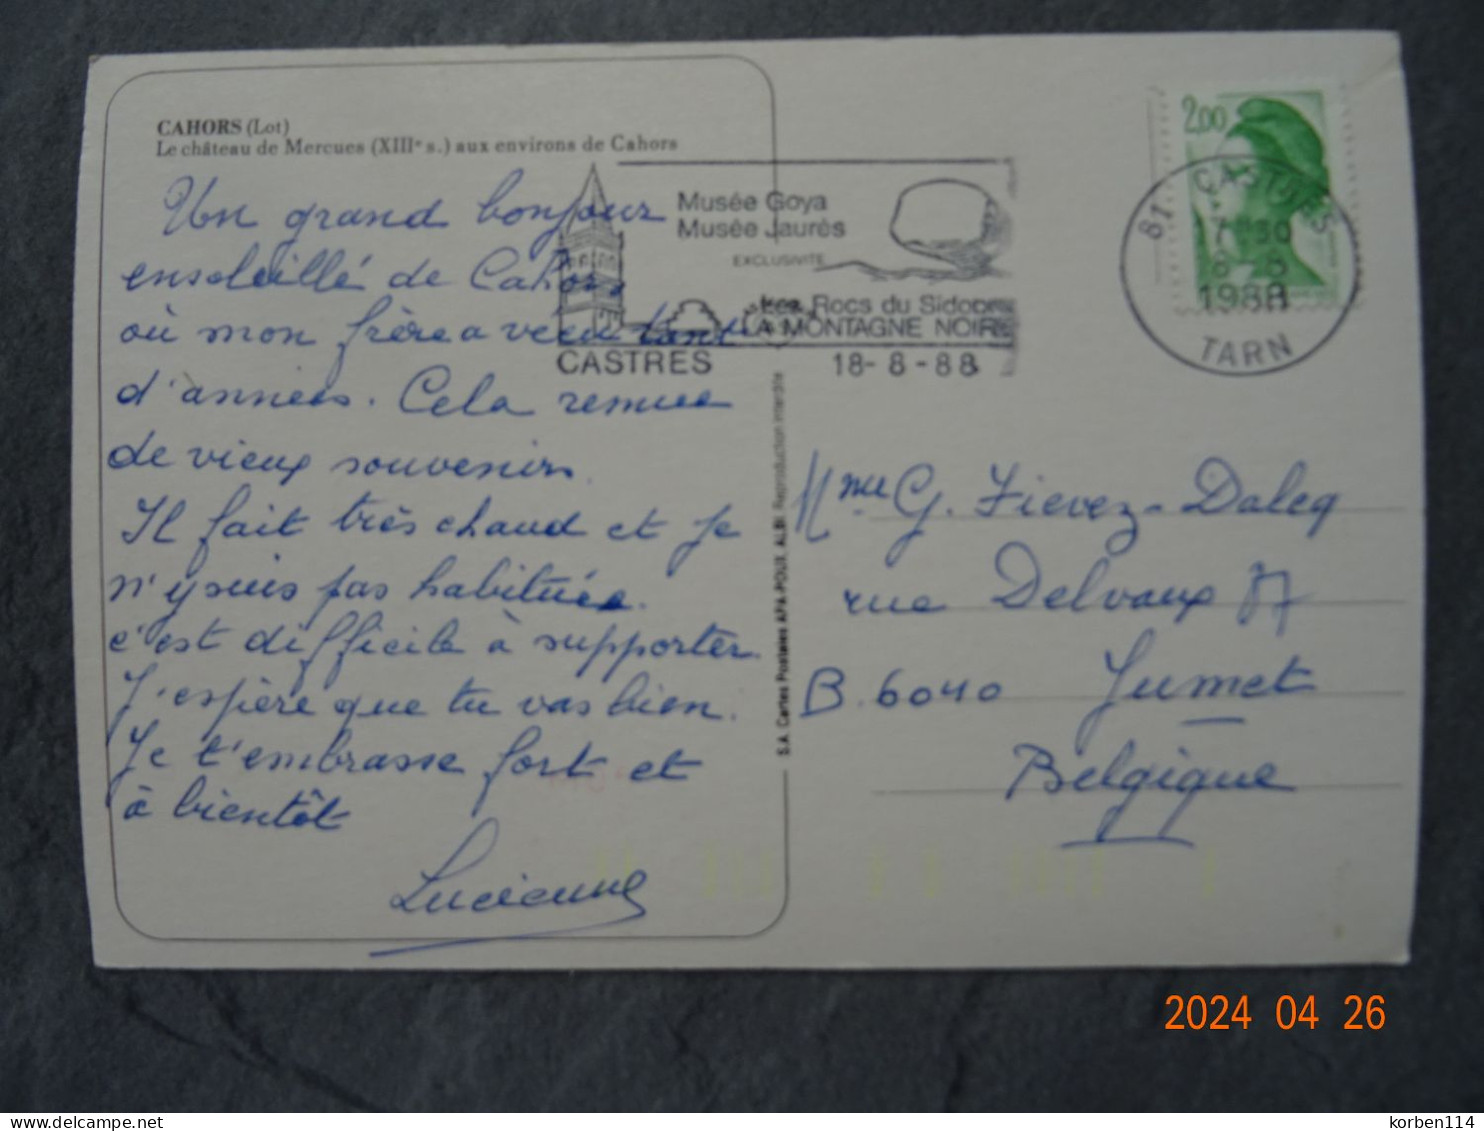 CAHORS (Lot)
Le château de Mercues (XIIIe s.) aux environs de Cahors
Un grand bonjour
ensoleillé de Cahors
où mon frère a vécu tant
d'années. Cela remue
de vieux souvenirs.
Il fait très chaud et je
n'y suis pas habituée.
c'est difficile à supporter.
J'espère que tu vas bien.
Je t'embrasse fort et
à bientôt
Lucienne
Musée Goya
Musée Jaurès
EXCLUSIVITE
Les Rocs du Sidobre
LA MONTAGNE NOIRE
CASTRES
18-8-88
2,00
81 CASTRES
1988
TARN
S.A. Cartes Postales APA-POUX. ALBI. Reproduction interdite
Mme G. Fievez-Daleq
rue Delvaux 37
B. 6040 Jumet
Belgique
2024 04 26
korben114